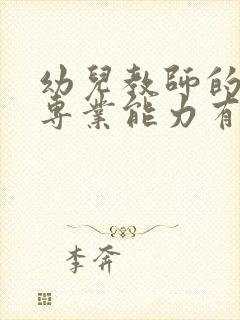 幼兒教師的
專業能力有
李奔